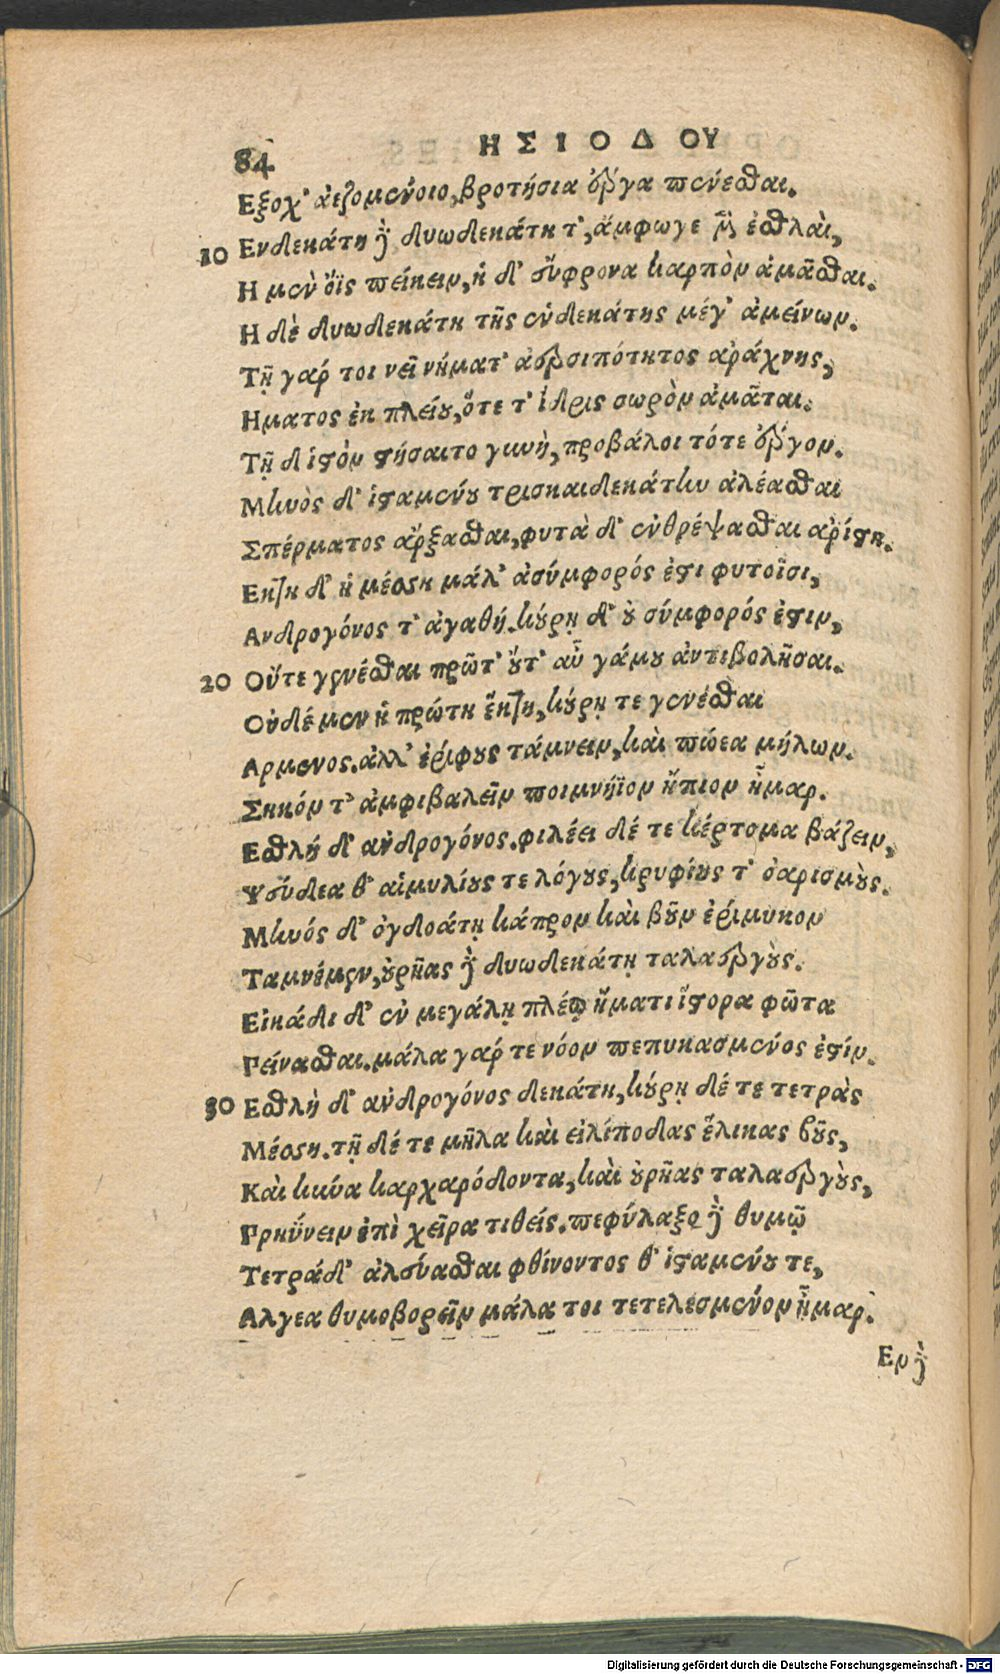 84 ΗΣΙΟΔΟΥ
Εξοχ' ἀεξομένοιο, βροτήσια ἔργα πένεσθαι.
10 Ενδεκάτη δὲ δυωδεκάτη τ', ἄμφωγε μὲν ἐσθλαὶ,
Η μὲν ὄϊς πείκειν, ἡ δ' εὔφρονα καρπὸν ἀμᾶσθαι.
Η δὲ δυωδεκάτη τῆς ἑνδεκάτης μέγ' ἀμείνων.
Τῇ γάρ τοι νεῖ νήματ' ἀερσιπότητος ἀράχνης,
Ηματος ἐκ πλείου, ὅτε τ' ἴδρις σωρὸν ἀμᾶται.
Τῇ δ ἱστὸν στήσαιτο γυνὴ, προβάλοι τότε ἔργον.
Μηνὸς δ' ἱσταμένου τρισκαιδεκάτην ἀλέασθαι
Σπέρματος ἄρξασθαι, φυτὰ δ' ἐνθρέψασθαι ἀρίστη.
Εκτη δ' ἡ μέσση μάλ' ἀσύμφορός ἐστι φυτοῖσι,
Ανδρογόνος τ' ἀγαθή. κούρῃ δ' οὐ σύμφορός ἐστιν,
20 Οὔτε γενέσθαι πρῶτ' οὔτ' αὖ γάμου ἀντιβολῆσαι.
Οὐδέ μεν ἡ πρώτη ἕκτη, κούρῃ τε γενέσθαι
Αρμενος. ἀλλ' ἐρίφους τάμνειν, καὶ πώεα μήλων.
Σηκόν τ' ἀμφιβαλεῖν ποιμνήϊον ἤπιον ἦμαρ.
Εσθλή δ' ἀνδρογόνος. φιλέει δέ τε κέρτομα βάζειν,
Ψεύδεα θ' αἱμυλίους τε λόγους, κρυφίους τ' ὀαρισμούς.
Μηνός δ' ὀγδοάτῃ κάπρον καὶ βοῦν ἐρίμυκον
Ταμνέμεν, οὐρῆας δὲ δυωδεκάτῃ ταλαεργούς.
Εἰκάδι δ' ἐν μεγάλῃ πλέῳ ἤματι ἵστορα φῶτα
Γείνασθαι. μάλα γάρ τε νόον πεπυκασμένος ἐστίν.
30 Εσθλὴ δ' ἀνδρογόνος δεκάτη, κούρῃ δέ τε τετρὰς
Μέσση. τῇ δέ τε μῆλα καὶ εἰλίποδας ἕλικας βοῦς,
Καὶ κύνα καρχαρόδοντα, καὶ οὐρῆας ταλαεργοὺς,
Πρηΰνειν ἐπὶ χεῖρα τιθείς. πεφύλαξο δὲ θυμῷ
Τετράδ' ἀλεύασθαι φθίνοντος θ' ἱσταμένου τε,
Αλγεα θυμοβορεῖν μάλα τοι τετελεσμένον ἦμαρ.
Εν δὲ
Digitalisierung gefördert durch die Deutsche Forschungsgemeinschaft - DFG